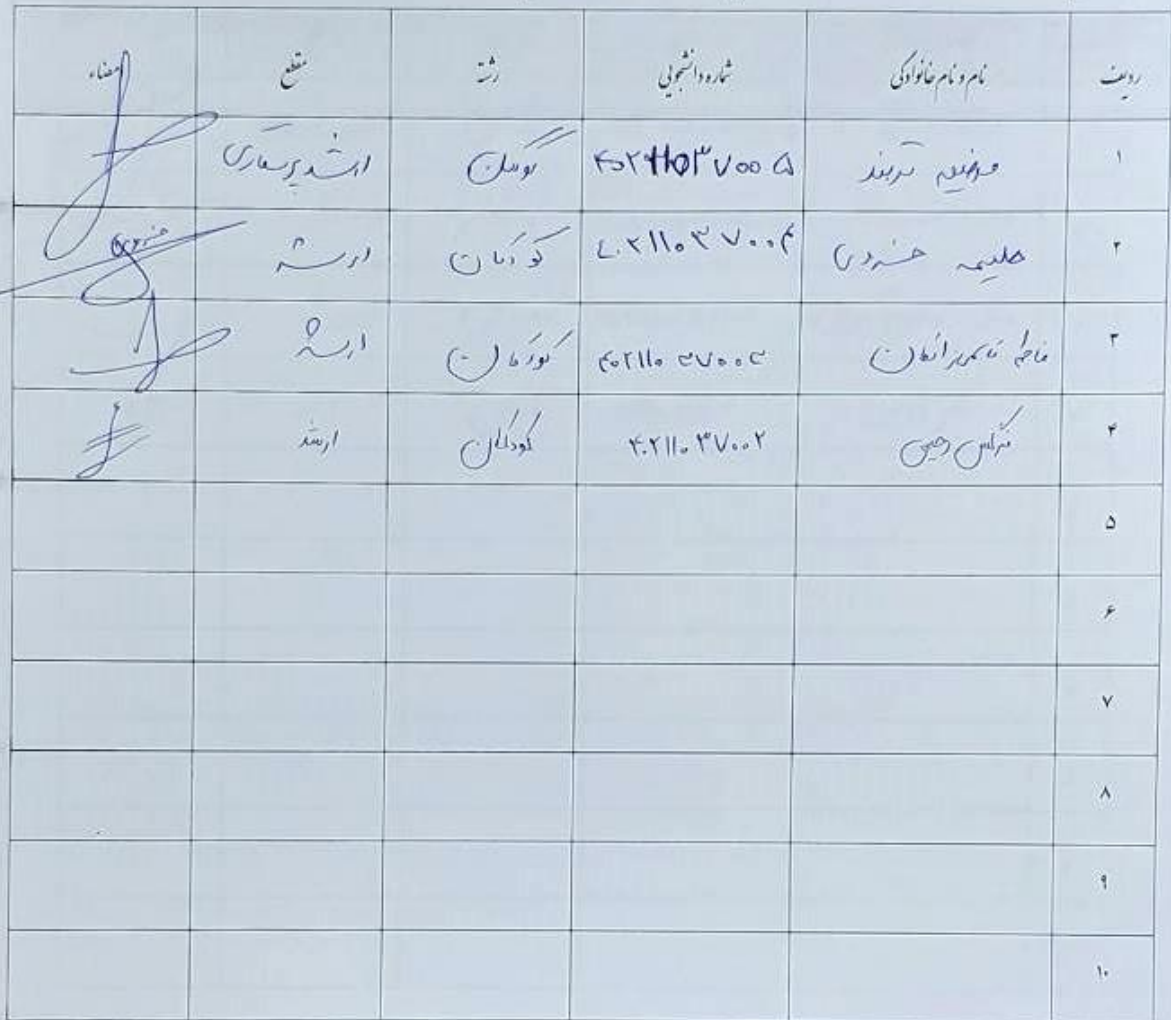 ردیف نام و نام خانوادگی شماره دانشجویی رشته مقطع امضاء
۱ مرضیه ۴۰۲۱۱۰۳۷۰۰۵ ارشد پرستاری
۲ حلیمه خسروی ۴۰۲۱۱۰۳۷۰۰۴ کودکان ارشد خسروی
۳ فاطمه ۴۰۲۱۱۰۳۷۰۰۳ کودکان ارشد
۴ نرگس رجبی ۴۰۲۱۱۰۳۷۰۰۲ کودکان ارشد
۵
۶
۷
۸
۹
۱۰